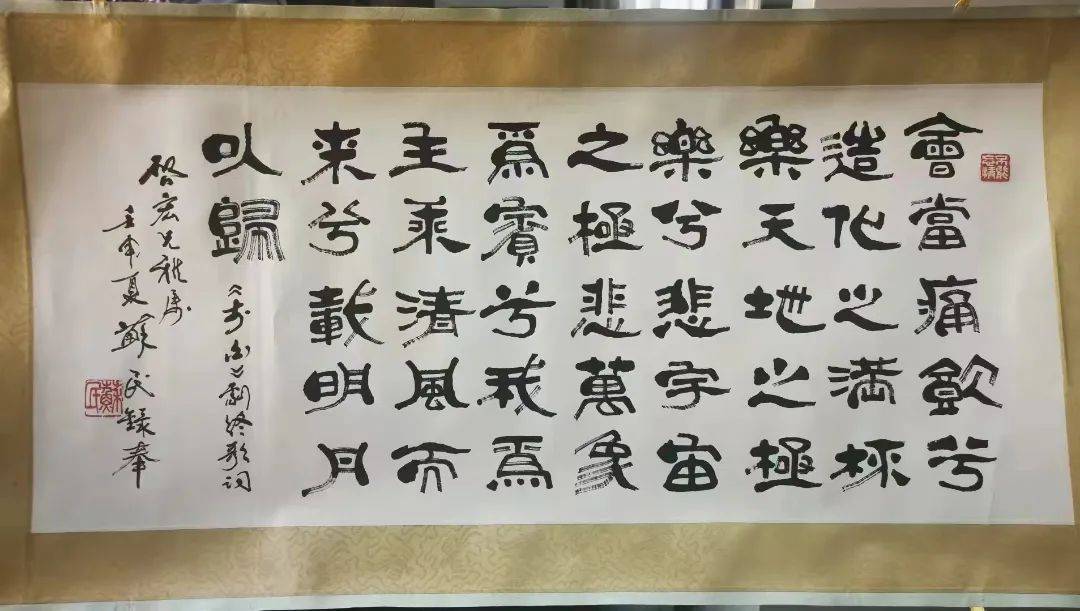 會當痛飲兮
造化之满杯
樂天地之極
樂兮悲宇宙
之極悲萬象
爲賓兮我爲
主乘清風而
来兮載明月
以歸
《李白》劇终歌词
啓宏兄雅属
壬申夏蘇民録奉
蘇民